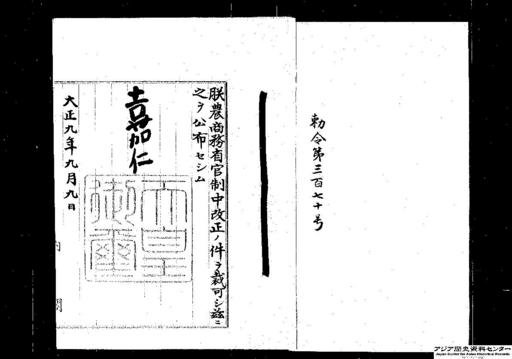 勅令第三百七十号
朕農商務省官制中改正ノ件ヲ裁可シ玆ニ
之ヲ公布セシム
嘉仁
天皇御璽
大正九年九月九日
内閣
アジア歴史資料センター
Japan Center for Asian Historical Records